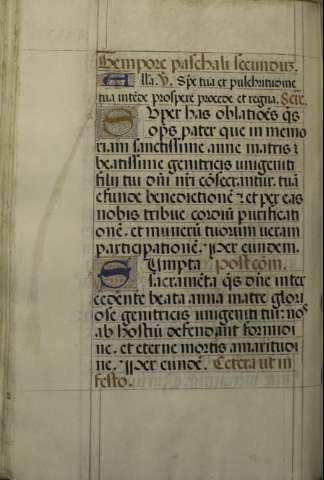 Tempore paschali secundū.
Alla. V. Spē tua et pulchritudine
tua intēde prospere procede et regna. Secre.
Super has oblatiōēs q̄s
oīps pater que in memo
riam sanctissime anne matris
beatissime genitricis unigeniti
filii tui dn̄i nr̄i cōsecrantur. tuā
efunde benedictionē et per eas
nobis tribue cordiū purificati
onē. et munerū tuorum ueram
participationē. Per eundem.
Sumpta post com.
sacramēta q̄s dn̄e inter
cedente beata anna matre glori
ose genitricis unigeniti tui: nos
ab hostiū defendant formidi
ne. et eterne mortis amaritudi
ne. Per eundē. Cetera ut in
festo.